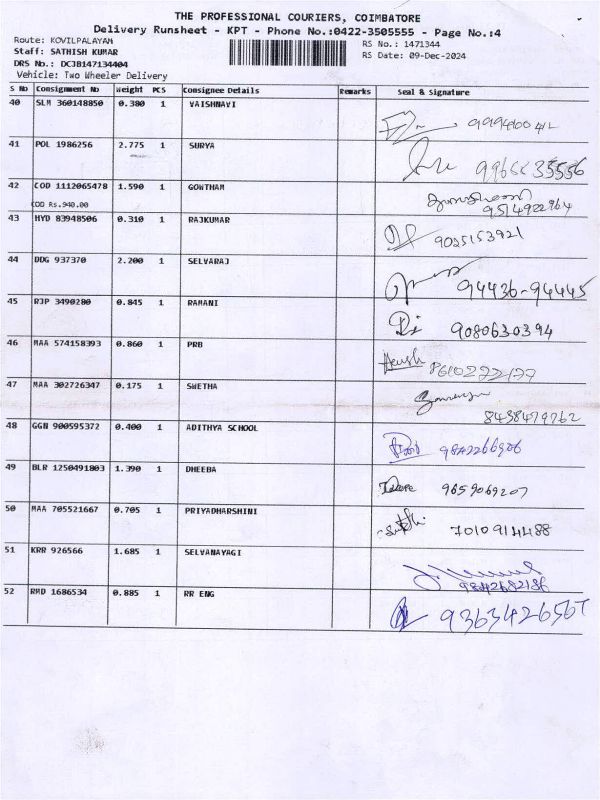 THE PROFESSIONAL COURIERS, COIMBATORE
Delivery Runsheet - KPT - Phone No.:0422-3505555 - Page No.:4
Route: KOVILPALAYAM
RS No.: 1471344
Staff: SATHISH KUMAR
RS Date: 09-Dec-2024
DRS No.: DCJB147134404
Vehicle: Two Wheeler Delivery
S No Consignment No Weight PCS Consignee Details Remarks Seal & Signature
40 SLM 360148850 0.380 1 VAISHNAVI
41 POL 1986256 2.775 1 SURYA
42 COD 1112065478 1.590 1 GOWTHAM
COD Rs.940.00 9514922964
43 HYD 83948506 0.310 1 RAJKUMAR 9025153921
44 DDG 937370 2.200 1 SELVARAJ 94436-94445
45 RJP 3490280 0.845 1 RAMANI 9080630394
46 MAA 574158393 0.860 1 PRB 8610222177
47 MAA 302726347 0.175 1 SWETHA
8438479762
48 GGN 900595372 0.400 1 ADITHYA SCHOOL 9842266906
49 BLR 1250491803 1.390 1 DHEEBA 9659069207
50 MAA 705521667 0.705 1 PRIYADHARSHINI 7010914488
51 KRR 926566 1.685 1 SELVANAYAGI
9842682186
52 RMD 1686534 0.885 1 RR ENG